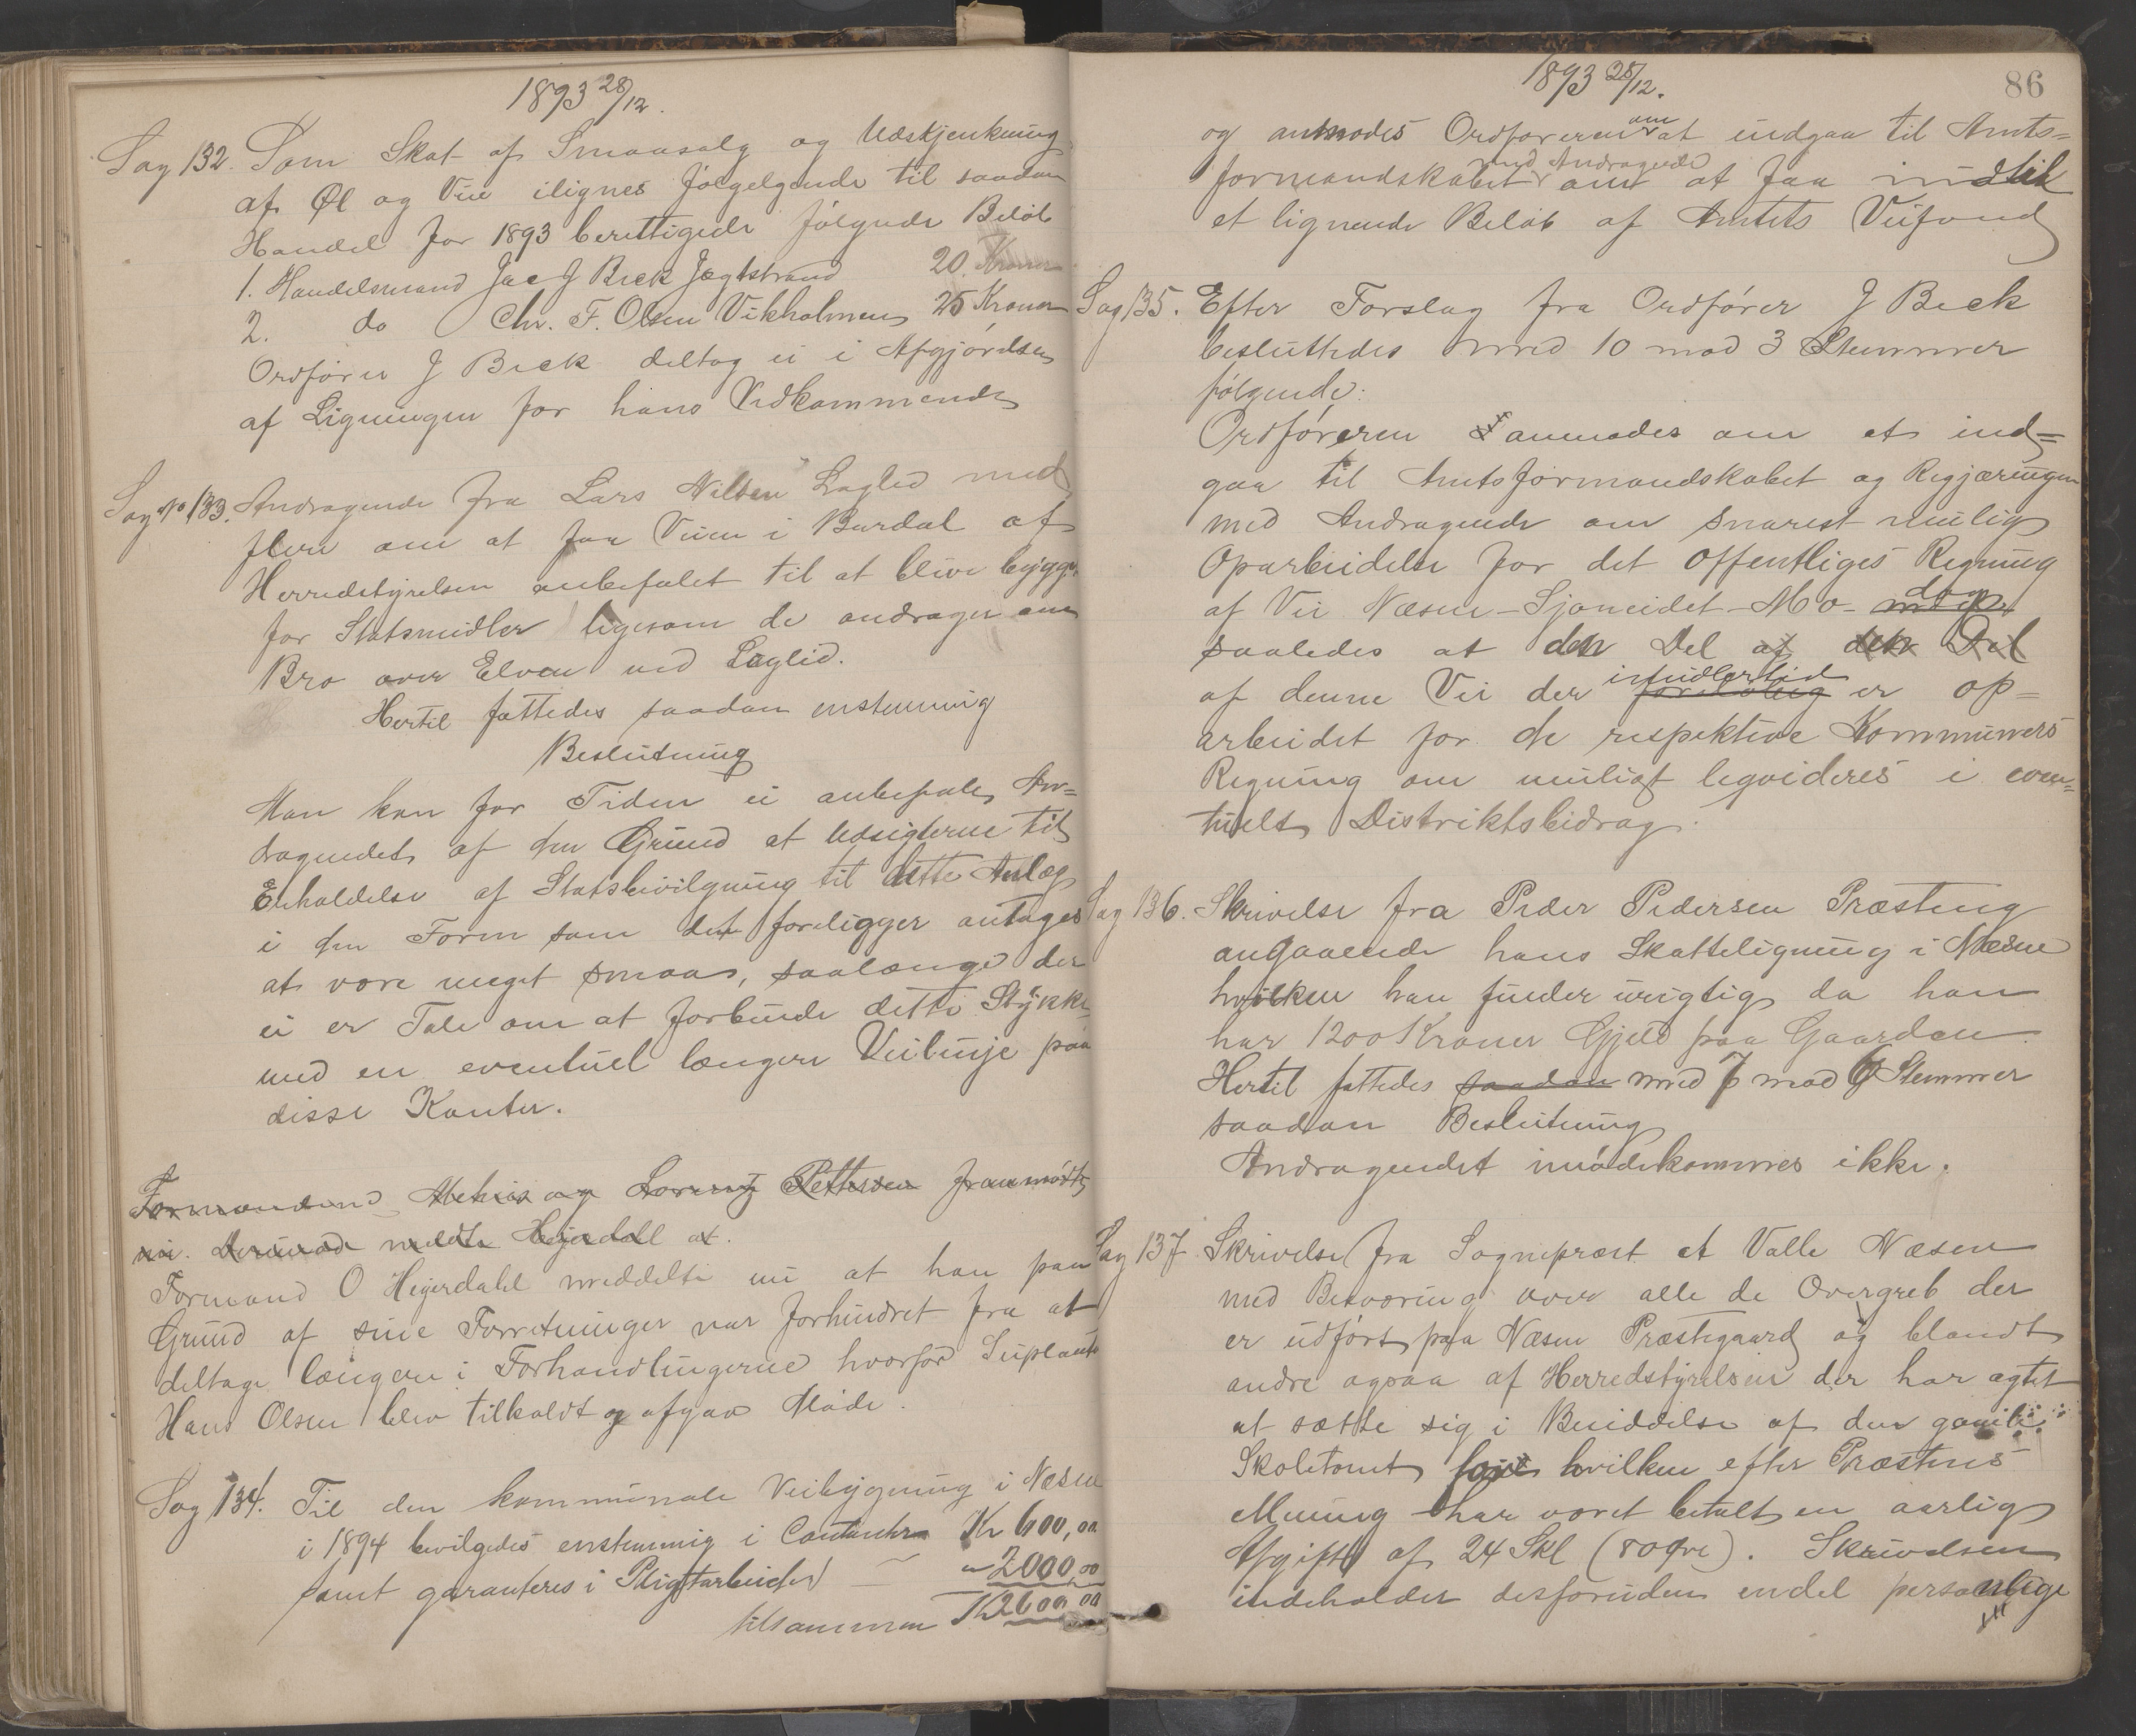 1893 28/12.
Sag 132. Som Skat af Smaasalg og Udskjenkning
af Øl og Vin ilignes følgelgende til saadan
Handel for 1893 berettigede følgende Beløb
1. Handelsmand Jac J Beck Jægtstrand 20 Kroner
2. do Chr. F. Olsen Vikholmen 25 Kroner
Ordfører J Beck deltog ei i Afgjørelsen
af Ligningen for hans Vedkommende
Sag No 133. Andragende fra Lars Nilsen Laglid med
flere om at faa Veien i Burdal af
Herredstyrelsen anbefalet til at blive bygget
for Statsmidler ligesom de andrager om
Bro over Elven ved Laglid.
Hertil fattedes saadan enstemmig
Beslutning
Man kan for Tiden ei anbefale An=
dragendet af den Grund at Udsigterne til
Erholdelse af Statsbevilgning til dette Anlæg
i den Form som det foreligger antages
at være meget smaa, saalænge der
ei er Tale om at forbinde dette Stykke
med en eventuel længere Veilinje paa
disse Kanter.
Formændene og Lorentz Pettersen fremmødte
nu. Derimod meldte Heierdahl at.
Formand O Heierdahl meddelte nu at han paa
Grund af sine Forretninger var forhindret fra at
deltage længere i Forhandlingerne hvorfor Suplant
Hans Olsen blev tilkaldt og afgav Møde.
Sag 134. Til den kommunale Veibygning i Næsne
i 1894 bevilgedes enstemmig i Contanter Kr 600,00
samt garanteres i Pligtarbeide — " 2000,00
tilsammen Kr 2600,00
1893 28/12.
86
og anmodes Ordføreren om at indgaa til Amts=
formandskabet med Andragende om at faa
et lignende Beløb af Amtets Veifond
Sag 135. Efter Forslag fra Ordfører J Beck
besluttedes med 10 mod 3 Stemmer
følgende:
Ordføreren anmodes om at ind=
gaa til Amtsformandskabet og Regjæringen
med Andragende om snarest mulig
Oparbeidelse for det offentliges Regning
af Vei Næsne-Sjoneidet-Mo- dog
saaledes at den Del af den Del
af denne Vei der imidlertid foreløbig er op=
arbeidet for de respektive Kommuners
Regning om muligt leqvideres i even=
tuelt Distriktsbidrag.
Sag 136. Skrivelse fra Peder Pedersen Præsteng
angaaende hans Skatteligning i Næsne
hvilken han finder urigtig da han
har 1200 Kroner Gjeld paa Gaarden.
Hertil fattedes saadan med 7 mod 6 Stemmer
saadan Beslutning
Andragendet imødekommes ikke.
Sag 137. Skrivelse fra Sogneprest at Valle Næsne
med Besværing over alle de Overgreb der
er udført paa Næsne Præstegaard og blandt
andre ogsaa af Herredstyrelsen der har agtet
at sætte sig i Besiddelse af den gamle
Skoletomt hvilken efter Præstens
Mening har været betalt en aarlig
Afgift af 24 Skl (80 Øre). Skrivelsen
indeholder desforuden endel personlige